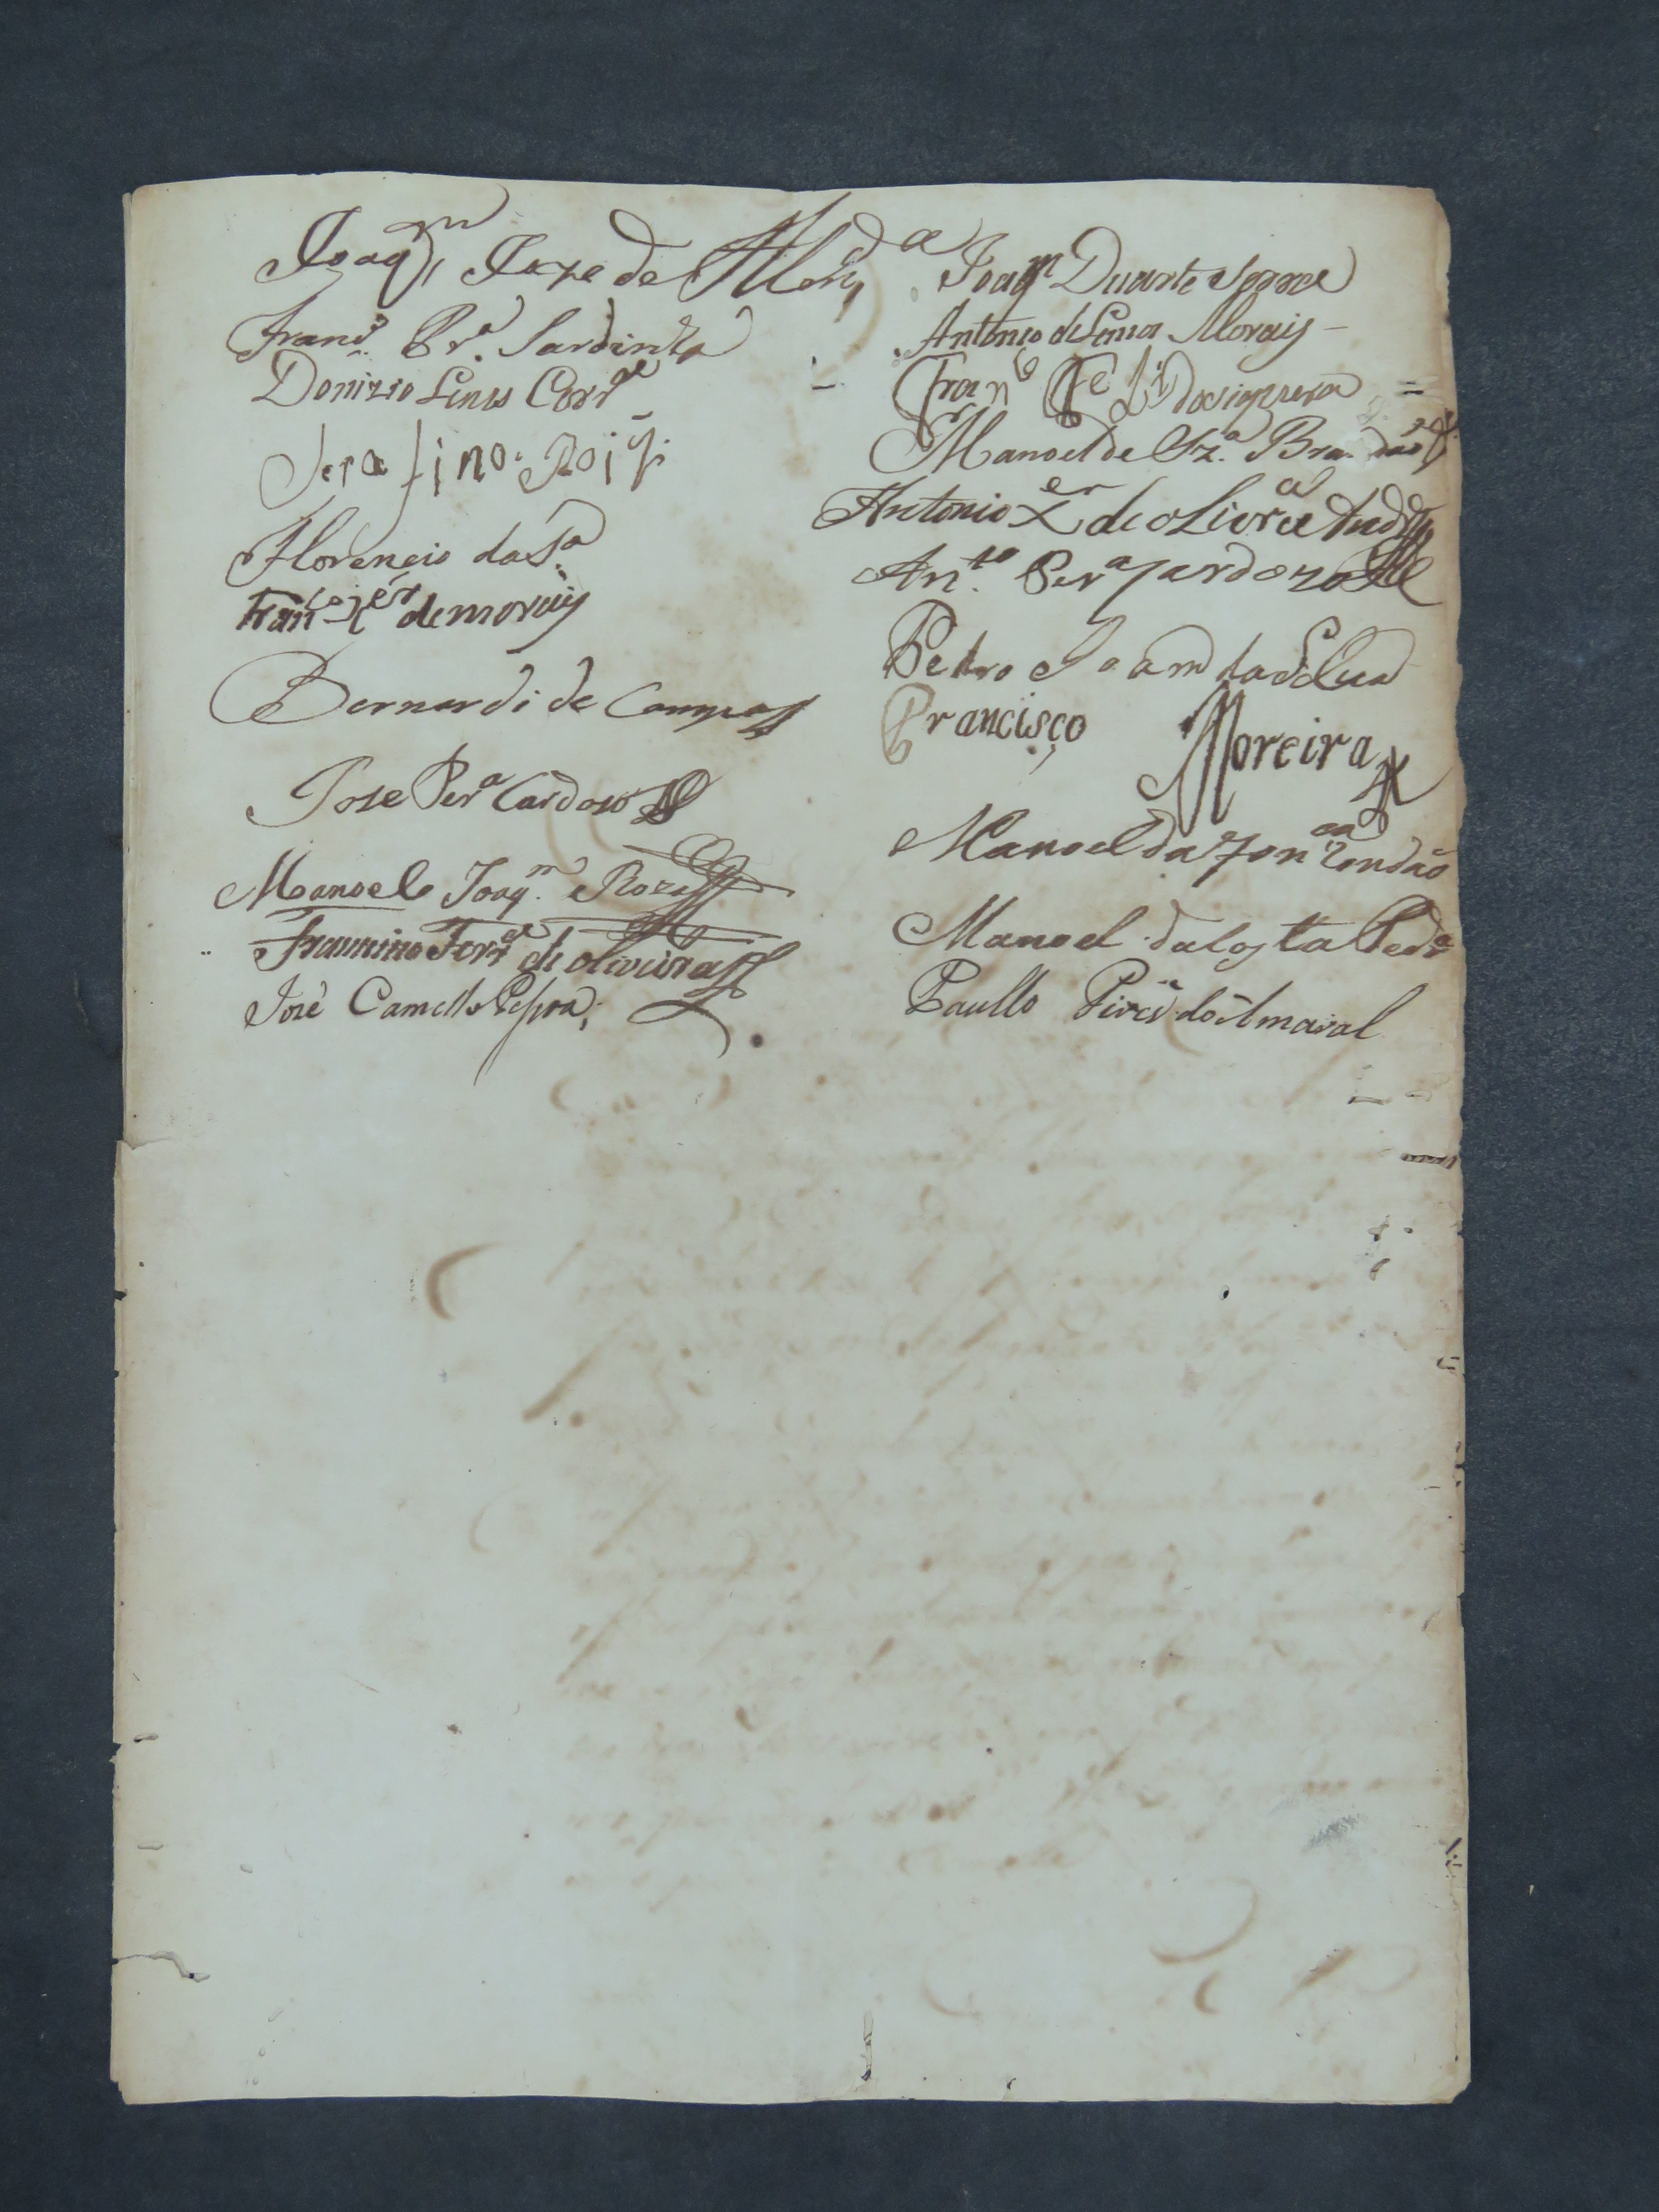 Joaqm Joze de Almda
Franco Pra Sardinha
Donizio Lemes Corra
Serafino Roiz
Florencio da Sa
Franco Xer de morais
Bernardi de Campos
Jose Pera Cardoso
Manoel Joaqm Roza
Ferra de oliveira
José Camello Pessoa
Joaqm Duarte
Antonio de Lima Morais
Fran
Manoel de Sza Brandão
Antonio Xer de oLivra
Anto Pera Jardozo
Pedro Joam da Sylva
Francisco Moreira
Manoel da Fonca Rondão
Manoel da Costa Pedr
Paullo Pires do Amaral